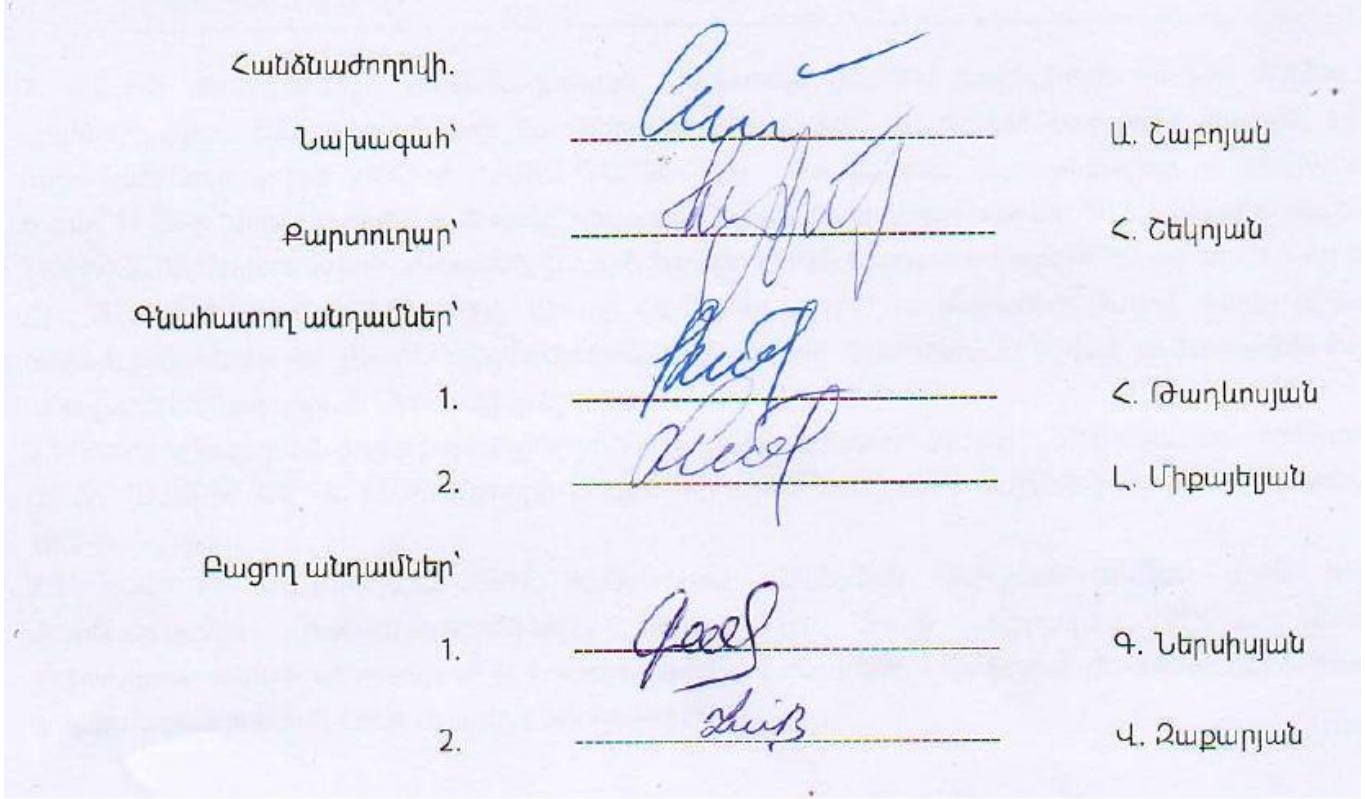 Հանձնաժողովի.
Նախագահ՝ Ա. Շաբոյան
Քարտուղար՝ Հ. Շեկոյան
Գնահատող անդամներ՝
1. Հ. Թադևոսյան
2. Լ. Միքայելյան
Բացող անդամներ՝
1. Գ. Ներսիսյան
2. Վ. Զաքարյան